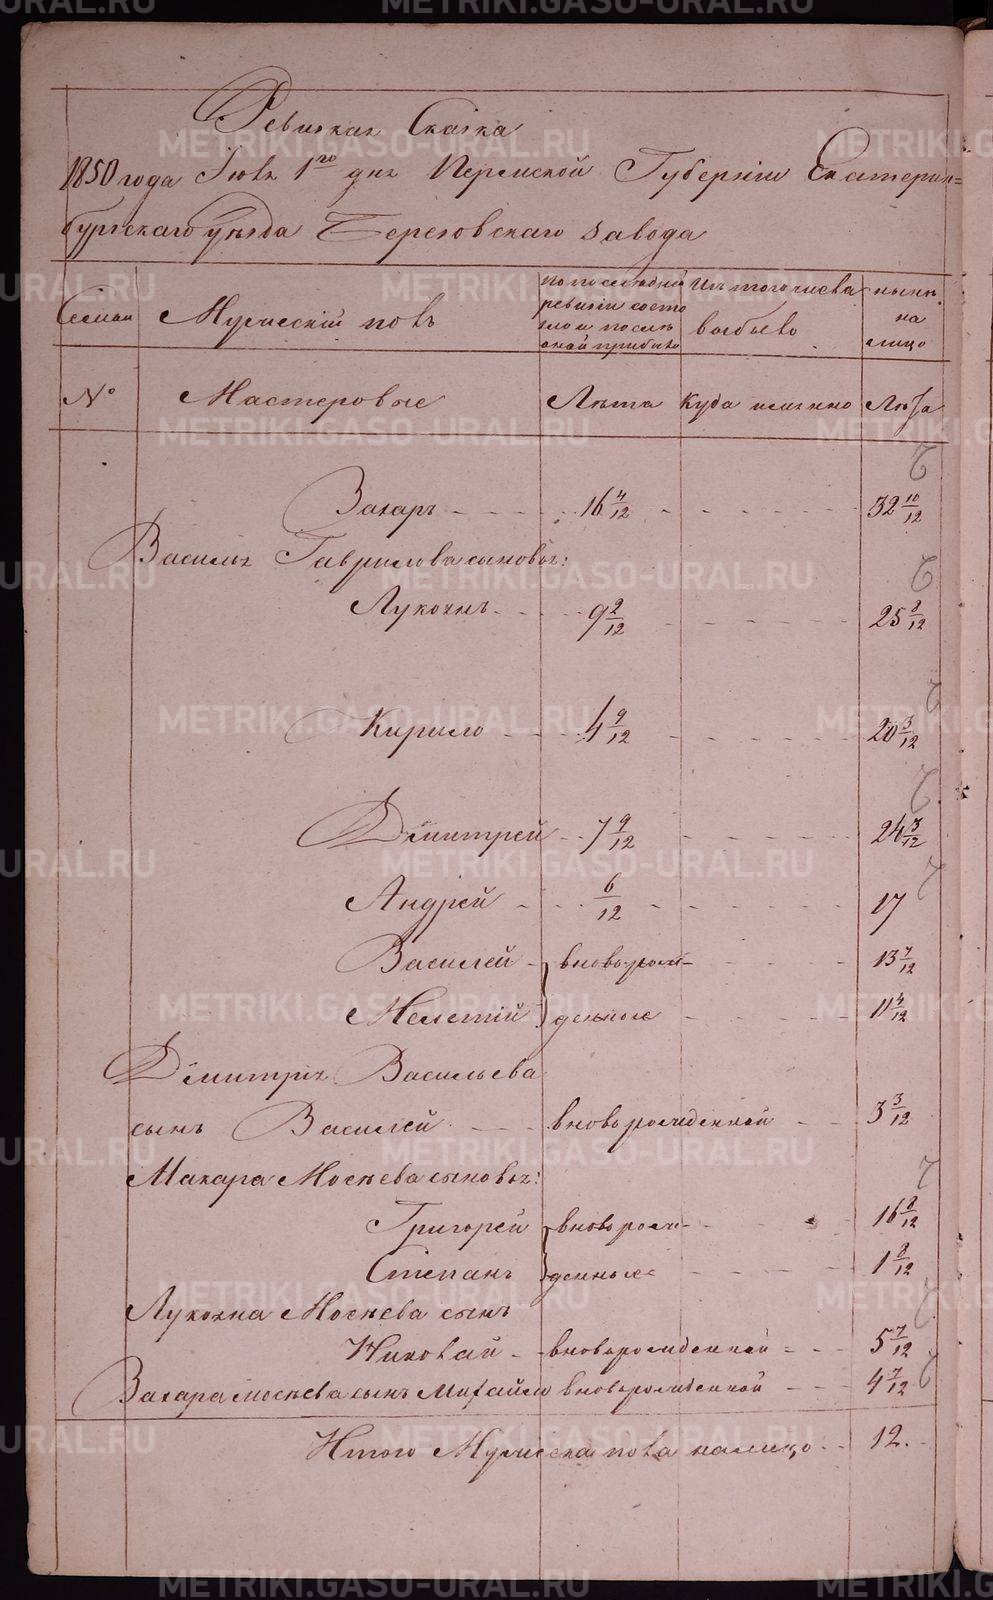 Ревизкая Сказка
1850 года Июля 1го дня Пермской Губернiи Екатерин=
бургскаго уѣзда Березовскаго завода
Семьи
Мужескiй полъ
по последней ревизiи состояло и послѣ оной прибыло
Изъ того числа выбыло
нынѣ на лицо
№
Мастеровые
Лѣта
Куда именно
Лѣта
Захаръ - - - 16 4/12 - - - 32 10/12
Василья Гаврилова сыновья:
Лукоянъ - - - 9 2/12 - - - 25 8/12
Кирило - - - 4 9/12 - - - 20 3/12
Дмитрей - - 7 9/12 - - - 24 3/12
Андрей - - - 6/12 - - - 17
Василей - вноворож- - - - 13 7/12
Мелетiй денные - - - 11 4/12
Дмитрiя Васильева
сынъ Василей - - - вноворожденной - - 3 3/12
Макара Мосѣева сыновья:
Григорей вноворож- - - - 16 8/12
Степанъ денные - - - 1 8/12
Лукояна Мосѣева сынъ
Николай - - вноворожденной - - - 5 7/12
Захара Мосѣева сынъ Михайло вноворожденной - - - 4 7/12
Итого Мужеска пола налицо - - 12.
METRIKI.GASO-URAL.RU